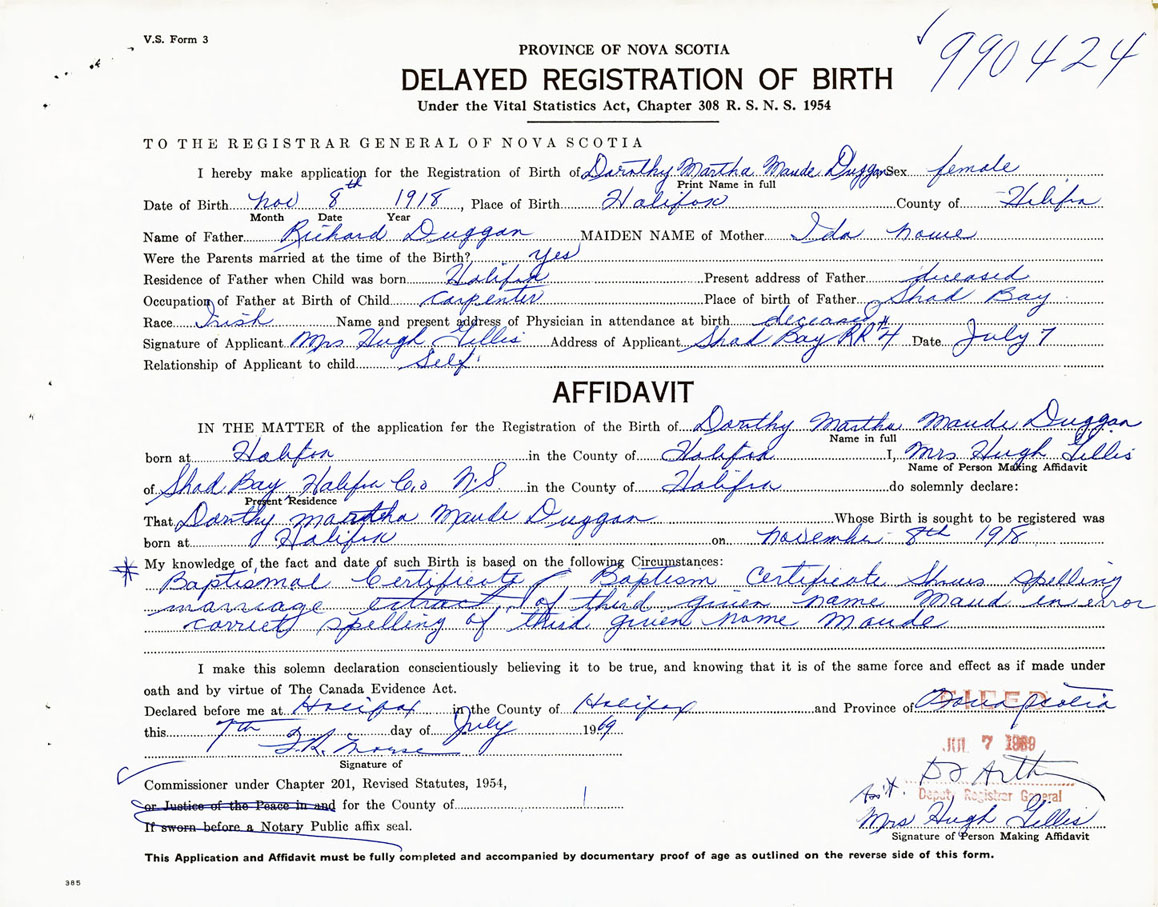 V.S. Form 3
990424
PROVINCE OF NOVA SCOTIA
DELAYED REGISTRATION OF BIRTH
Under the Vital Statistics Act, Chapter 308 R. S. N. S. 1954
TO THE REGISTRAR GENERAL OF NOVA SCOTIA
I hereby make application for the Registration of Birth of Dorothy Martha Maude Duggan Sex female
Print Name in full
Date of Birth Nov 8th 1918, Place of Birth Halifax County of Halifax
Month Date Year
Name of Father Richard Duggan MAIDEN NAME of Mother Ida
Were the Parents married at the time of the Birth? yes
Residence of Father when Child was born Halifax Present address of Father deceased
Occupation of Father at Birth of Child Carpenter Place of birth of Father Shad Bay
Race Irish Name and present address of Physician in attendance at birth deceased
Signature of Applicant Mrs Hugh Gillis Address of Applicant Shad Bay RR #4 Date July 7
Relationship of Applicant to child Self
AFFIDAVIT
IN THE MATTER of the application for the Registration of the Birth of Dorothy Martha Maude Duggan
Name in full
born at Halifax in the County of Halifax I, Mrs Hugh Gillis
Name of Person Making Affidavit
of Shad Bay Halifax Co N.S in the County of Halifax do solemnly declare:
Present Residence
That Dorthy Martha Maude Duggan Whose Birth is sought to be registered was
born at Halifax on November 8th 1918
My knowledge of the fact and date of such Birth is based on the following Circumstances:
Baptismal Certificate Baptism Certificate Shows spelling
marriage extract, of third given name Maud in error
correct spelling of third given name Maude
I make this solemn declaration conscientiously believing it to be true, and knowing that it is of the same force and effect as if made under
oath and by virtue of The Canada Evidence Act.
Declared before me at Halifax in the County of Halifax and Province of Nova Scotia
FILED
this 7th day of July 1969
JUL 7 1969
Signature of
Commissioner under Chapter 201, Revised Statutes, 1954,
Ass't. Deputy Registrar General
or Justice of the Peace in and for the County of
Mrs Hugh Gillis
If sworn before a Notary Public affix seal.
Signature of Person Making Affidavit
This Application and Affidavit must be fully completed and accompanied by documentary proof of age as outlined on the reverse side of this form.
385